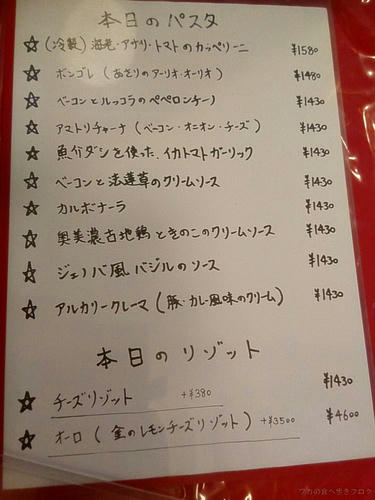 本日のパスタ
☆ (冷製) 海老・アサリ・トマトのカッペリーニ ¥1580
☆ ボンゴレ (あさりのアーリオ・オーリオ) ¥1480
☆ ベーコンとルッコラのペペロンチーノ ¥1430
☆ アマトリチャーナ (ベーコン・オニオン・チーズ) ¥1430
☆ 魚介ダシを使った、イカトマトガーリック ¥1430
☆ ベーコンと法蓮草のクリームソース ¥1430
☆ カルボナーラ ¥1430
☆ 奥美濃古地鶏ときのこのクリームソース ¥1430
☆ ジェノバ風 バジルのソース ¥1430
☆ アルカリークレーマ (豚・カレー風味のクリーム) ¥1430
本日のリゾット
☆ チーズリゾット +¥380 ¥1430
☆ オーロ ( 金のレモンチーズリゾット) +¥3500 ¥4600
ワカの食べ歩きブログ